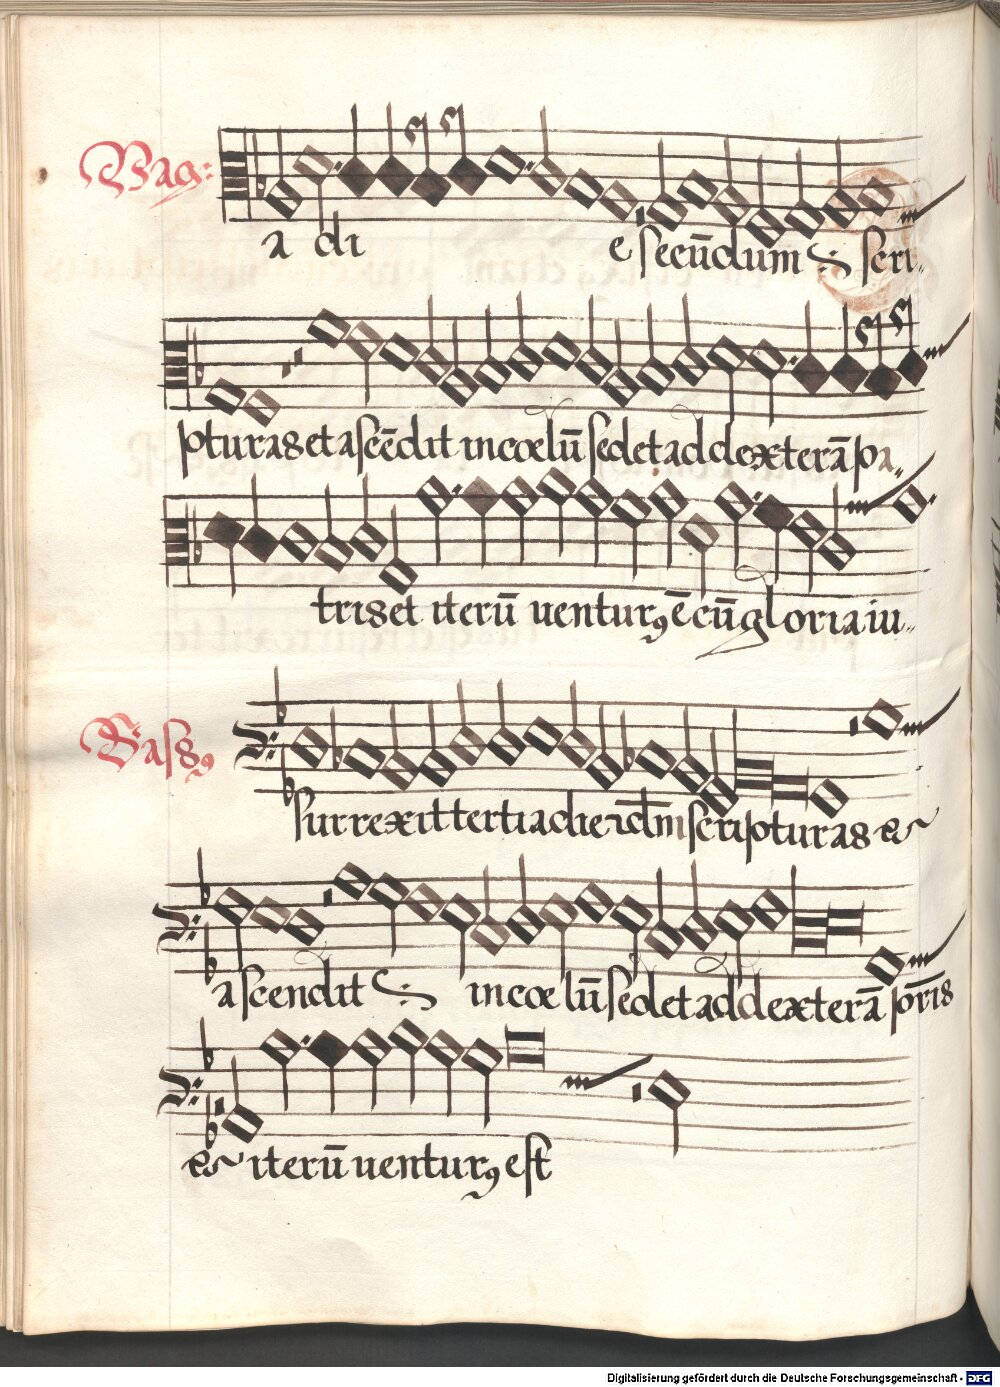 Vag:
a di e secūdum :S: scri„
pturas et ascēdit in cœlū sedet ad dexterā pa„
tris et iterū uenturꝯ ē cū gloria iu„
Bassꝯ
surrexit tertia die scdm scripturas &
ascendit :S: in cœlū sedet ad dexterā pr̄is
& iterū uenturꝯ est
Digitalisierung gefördert durch die Deutsche Forschungsgemeinschaft - DFG